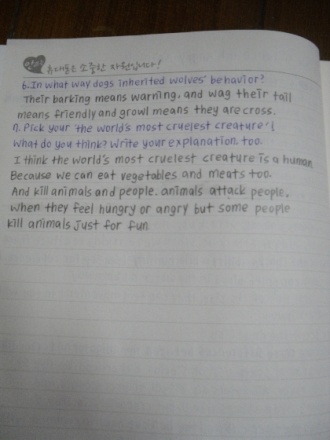 휴대폰은 소중한 자원입니다!
6. In what way dogs inherited wolves' behavior?
Their barking means warning, and wag their tail
means friendly and growl means they are cross.
7. Pick your 'the world's most cruelest creature'!
What do you think? Write your explanation, too.
I think the world's most cruelest creature is a human.
Because we can eat vegetables and meats too.
And kill animals and people. animals attack people,
when they feel hungry or angry but some people
kill animals just for fun.